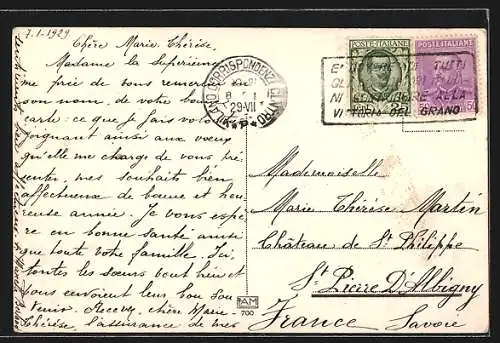 7.1-1929
Chère Marie Thérèse,
Madame la Supérieure
me prie de vous remercier
son nom, de votre bonne
carte: ce que je fais volon
joignant ainsi aux vœux
qu'elle me charge de vous pré
senter, mes souhaits bien
affectueux de bonne et heu-
reuse année. Je vous espè
re en bonne santé ainsi
que toute votre famille. Ici,
toutes les sœurs vont bien et
vous envoient leur bon Sou
venir. Recevez, chère Marie-
Thérèse, l'assurance de mes
CORRISPONDENZE
8 - 1
29-VII
POSTE·ITALIANE
POSTE ITALIANE
TUTTI
ALLA
GRANO
AM
700
Mademoiselle
Marie Thérèse Martin
Château de St Philippe
St Pierre D'Albigny
France Savoie